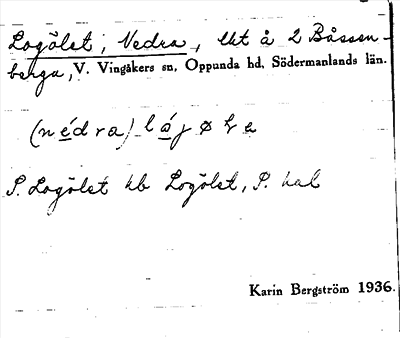 Logölet, Nedra, lht å 2 Båssen-
berga, V. Vingåkers sn, Oppunda hd, Södermanlands län.
(nédra) láj
S. Logölet hb Logölet, P. kal
Karin Bergström 1936.